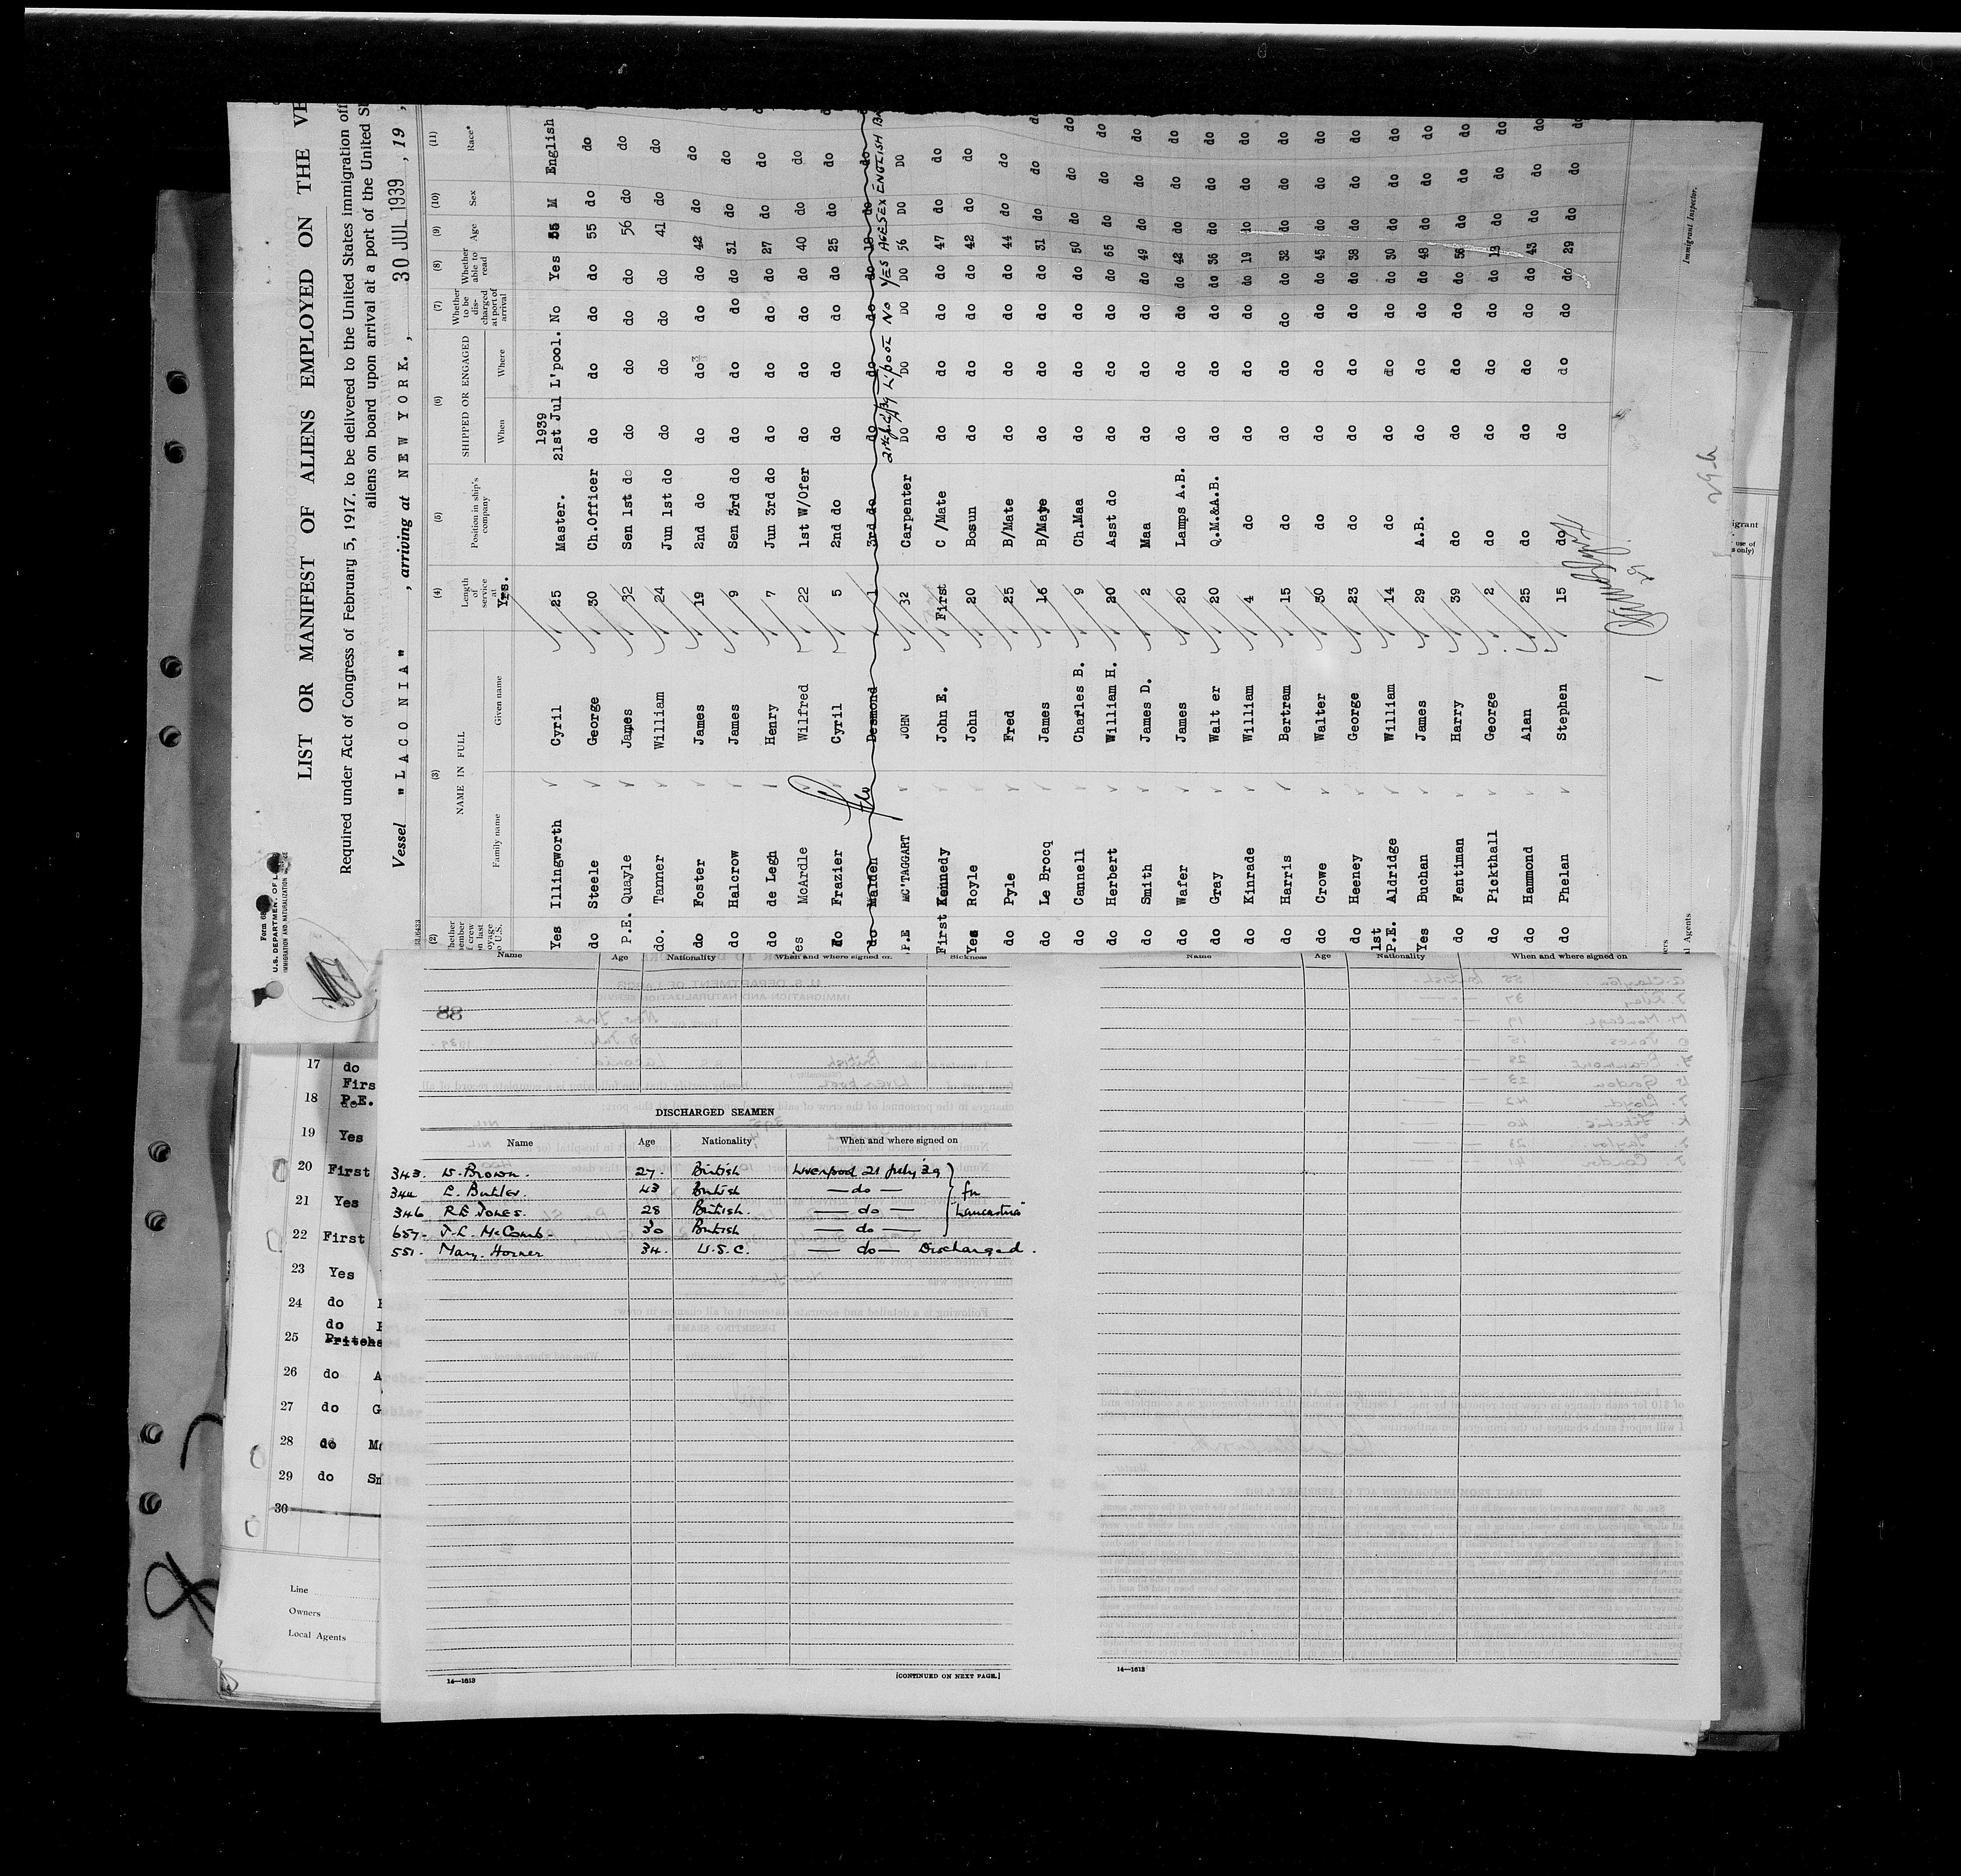 LIST OR MANIFEST OF ALIENS EMPLOYED ON THE VE
Required under Act of Congress of February 5, 1917, to be delivered to the United States immigration off
aliens on board upon arrival at a port of the United St
Vessel "LACONIA" , arriving at NEW YORK. , 30 JUL 1939 , 19 ,
U.S. DEPARTMENT OF L
IMMIGRATION AND NATURALIZATION SERVICE
(2) (3) (4) (5) (6) (7) (8) (9) (10) (11)
NAME IN FULL Length of service at Yrs. Position in ship's company SHIPPED OR ENGAGED Whether to be discharged at port of arrival Whether able to read Age Sex Race*
Family name Given name When Where
1939
Yes Illingworth Cyril 25 Master. 21st Jul L'pool. No Yes 55 M English
do Steele George 30 Ch.Officer do do do do 55 do do
P.E. Quayle James 32 Sen 1st do do do do do 56 do do
do. Tanner William 24 Jun 1st do do do do do 41 do do
do Foster James 19 2nd do do do do do 42 do do
do Halcrow James 9 Sen 3rd do do do do do 31 do do
do de Legh Henry 7 Jun 3rd do do do do do 27 do do
es McArdle Wilfred 22 1st W/Ofer do do do do 40 do do
do Frazier Cyril 5 2nd do do do do do 25 do do
do Malden Desmond 1 3rd do do do do do do do
L'pool No YES AGE SEX ENGLISH
P.E MC'TAGGART JOHN 32 Carpenter DO DO DO DO 56 DO DO
First Kennedy John E. First C /Mate do do do do 47 do do
Yes Royle John 20 Bosun do do do do 42 do do
do Pyle Fred 25 B/Mate do do do do 44 do do
do Le Brocq James 16 B/Maye do do do do 31 do do do
do Cannell Charles B. 9 Ch.Maa do do do do 50 do do do
do Herbert William H. 20 Asst do do do do do 65 do do do
do Smith James D. 2 Maa do do do do 49 do do do
do Wafer James 20 Lamps A.B. do do do do 42 do do do
do Gray Walt er 20 Q.M.&A.B. do do do do 36 do do do
do Kinrade William 4 do do do do do 19 do do do
do Harris Bertram 15 do do do do do 32 do do do
do Crowe Walter 30 do do do do do 45 do do do
do Heeney George 23 do do do do do 38 do do do
1st
P.E. Aldridge William 14 do do do do do 30 do do do
Yes Buchan James 29 A.B. do do do do 48 do do do
do Fentiman Harry 39 do do do do do 56 do do do
do Pickthall George 2 do do do do do do do do
do Hammond Alan 25 do do do do do 43 do do do
do Phelan Stephen 15 do do do do do 29 do do do
Immigrant Inspector.
l Agents
Name Age Nationality When and where signed on. Sickness
DISCHARGED SEAMEN
Name Age Nationality When and where signed on
343. W. Brown. 27. British Liverpool 21 July, 39
344 E. Butler. 43 British — do —
346 R E Jones. 28 British. — do —
657- J. L. McComb- 30 British — do —
for "Lancastria"
551- Mary. Horner 34. U.S.C. — do — Discharged.
14—1613
[CONTINUED ON NEXT PAGE.]
Name Age Nationality When and where signed on
14—1613
17 do
Firs
18 P.E.
19 Yes
20 First
21 Yes
22 First
23 Yes
24 do
do
25 Pritche
26 do A
27 do G
28 do M
29 do Sm
30
Line
Owners
Local Agents
igrant
use of
s only)